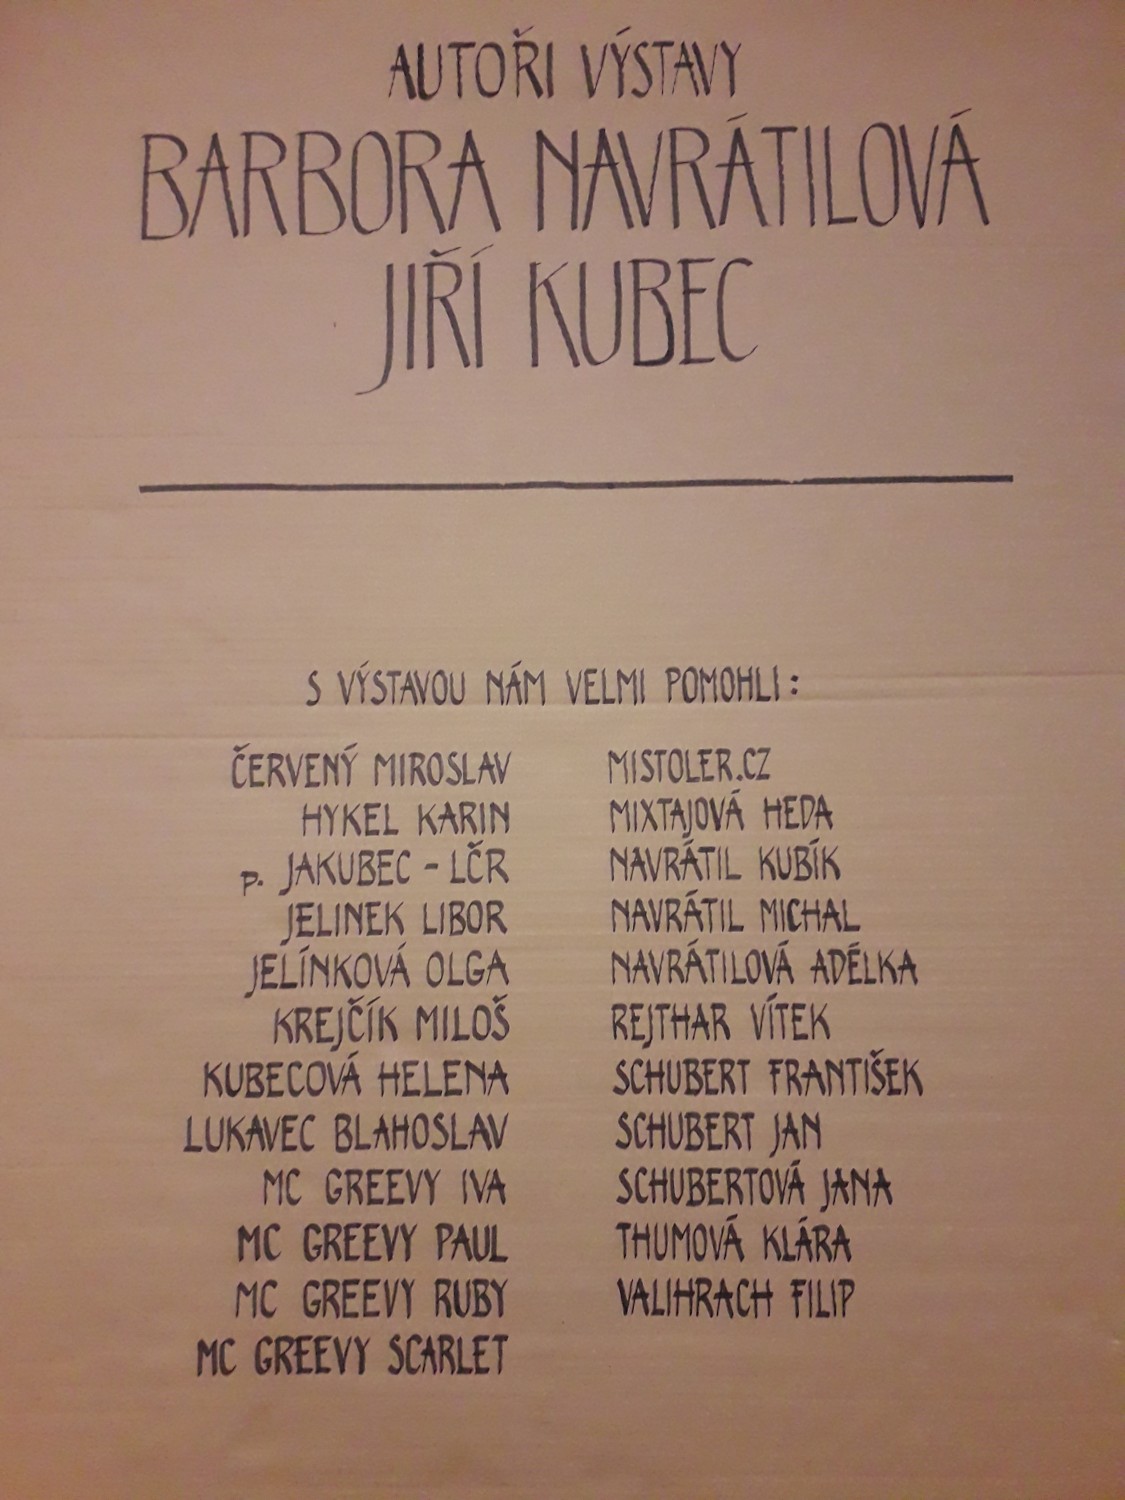 AUTOŘI VÝSTAVY
BARBORA NAVRÁTILOVÁ
JIŘÍ KUBEC
S VÝSTAVOU NÁM VELMI POMOHLI:
ČERVENÝ MIROSLAV
HYKEL KARIN
p. JAKUBEC - LČR
JELINEK LIBOR
JELÍNKOVÁ OLGA
KREJČÍK MILOŠ
KUBECOVÁ HELENA
LUKAVEC BLAHOSLAV
MC GREEVY IVA
MC GREEVY PAUL
MC GREEVY RUBY
MC GREEVY SCARLET
MISTOLER.CZ
MIXTAJOVÁ HEDA
NAVRÁTIL KUBÍK
NAVRÁTIL MICHAL
NAVRÁTILOVÁ ADÉLKA
REJTHAR VÍTEK
SCHUBERT FRANTIŠEK
SCHUBERT JAN
SCHUBERTOVÁ JANA
THUMOVÁ KLÁRA
VALIHRACH FILIP